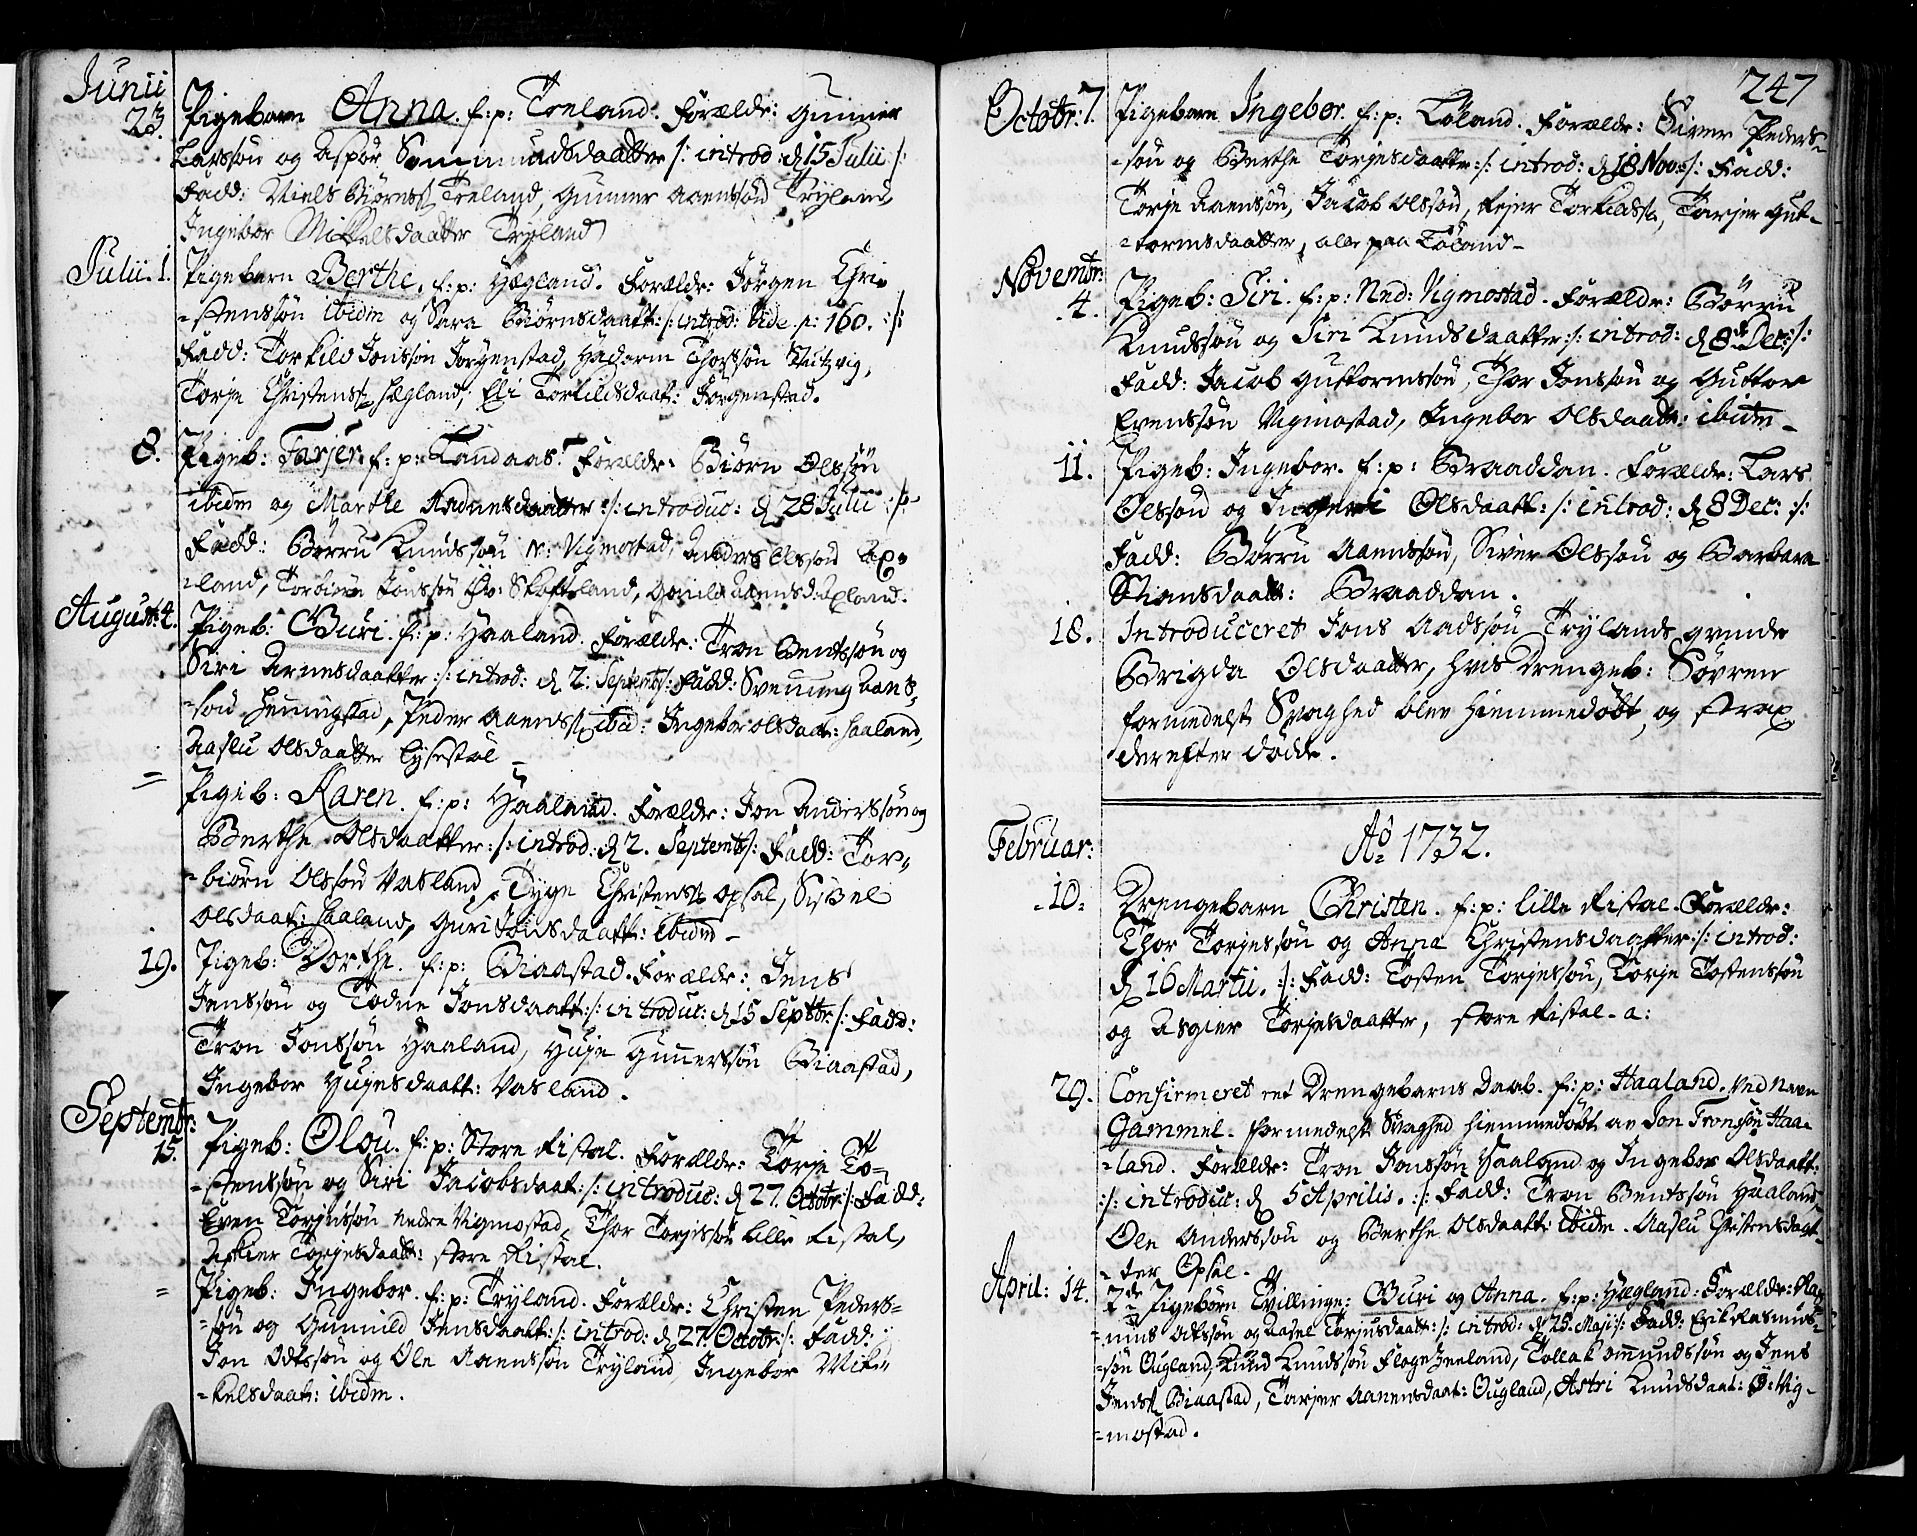 Junii
23. Pigebarn Anna. f: p: Treland. Forældr: Gunner
Larssøn og Aspor Sommundsdaatter /: introd: d 15 Julii :/
Fadd: Niels Biørnss Treland, Gunner Aanensøn Tryland,
Ingebor Mikkelsdaatter Tryland
Julii. 1. Pigebarn Berthe. f: p: Hægland. Forældr: Jørgen Chri-
-stenssøn ibidm og Sara Biørnsdaatt: /: introd: vide p: 160. :/
Fadd: Torkild Jonssøn Jørgenstad, Thorssøn
Torje Christenss Hægland, Eli Torkildsdaatt: Jørgenstad.
8. Pigeb: Tarjer. f: p: Landaas. Forældr: Biørn Olssøn
ibidm og Marthe Andersdaatter /: introduc: d 28 Julii :/
Fadd: Børru Knudssøn N: Vigmostad, Anders Olssøn Ax-
-land, Torbiørn Jonssøn Øv: Skofteland, Gunild Aanensd: Axland.
August: 4. Pigeb: Guri. f: p: Haaland. Forældr: Tron Bentssøn og
Siri Arnesdaatter /: introd: d 2. Septemb: /: Fadd: Svenning Aans-
-søn Henningstad, Peder Aanenss ibid: Ingebor Olsdaat: Haaland,
Aaslu Olsdaatter Lysestøl
= Pigeb: Karen. f: p: Haaland. Forældr: Jon Anderssøn og
Berthe Olsdaatter /: introd: d 2. Septemb: /: Fadd: Tor-
-biørn Olssøn Vasland, Tyge Christenss Opsal, Sissel
Olsdaat: Haaland, Guri Jonsdaatt: ibidm
19. Pigeb: Dorthe. f: p: Biaastad. Forældr: Jens
Jenssøn og Todne Jonsdaatt: /: introduc: d 15 Septbr: /: Fadd:
Tron Jonssøn Haaland, Huje Gunnerssøn Biaastad,
Ingebor Hujesdaatt: Vasland.
Septembr:
15. Pigeb: Olou. f: p: Store Ristal. Forældr: Torje To-
-stenssøn og Siri Jacobsdaat: /: introduc: d 27. Octobr: /: Fadd:
Even Torjussøn Nedre Vigmostad, Thor Torjussøn Lille Ristal,
Askier Torjesdaatt: store Ristal.
= Pigeb: Ingebor. f: p: Tryland. Forældr: Christen Peders-
-søn og Gunnild Jensdaatt: /: introd: d 27. Octobr: /: Fadd:
Jon Odssøn og Ole Aanenssøn Tryland, Ingebor Mik-
-kelsdaat: ibidm.
247
Octobr: 7. Pigebarn Ingebor. f: p: Føland. Forældr: Siver Peders-
-søn og Berthe Torjesdaatter /: introd: d 18 Nov: /: Fadd:
Torje Aanenssøn, Jacob Olssøn, Rejer Torkildss, Tarjer Gut-
-tormsdaatter, alle paa Føland
Novembr:
4. Pigeb: Siri. f: p: Ned: Vigmostad. Forældr: Børru
Knudssøn og Siri Knudsdaatter /: introd: d 8de Dec: :/
Fadd: Jacob Guttormssøn, Thor Jonssøn og Guttor
Evenssøn Vigmostad, Ingebor Olsdaatt: ibidm
11. Pigeb: Ingebor. f: p: Braaddan. Forældr: Lars
Olssøn og Ingeri Olsdaatt: /: introd: d 8 Dec: :/
Fadd: Børru Aanenssøn, Siver Olssøn og Barbara
Stiansdaatt: Braaddan.
18. Introduceret Jens Aadssøn Trylands qvinde
Brigda Olsdaatter, hvis Drengeb: Søvren
formedelst Svaghed blev hiemmedøbt, og strax
derefter døde.
Ao 1732.
Februar:
10. Drengebarn Christen. f: p: Lille Ristal. Forældr:
Thor Torjussøn og Anna Christensdaatter /: introd:
d 16 Martii. :/ Fadd: Tosten Torjessøn, Torje Tostenssøn
og Asgier Torjesdaatter, store Ristal
29. Confirmeret et Drengebarns Daab. f: p: Haaland. Ved Navn
Gammel. formedelst Svaghed hiemmedøbt av Jon Tronssøn Haa-
-land. Forældr: Tron Jonssøn Haaland og Ingebor Olsdaatt:
/: introduc: d 5 Aprilis. :/ Fadd: Tron Bentssøn Haaland,
Ole Anderssøn og Berthe Olsdaatt: ibidm. Aaslu Christensdaat-
-ter Opsal
April: 14. 2de Pigebørn Tvillinge: Guri og Anna. f: p: Hægland. Forældr: Ras-
-mus Olssøn og Aasel Torjusdaatt: /: introd: d 25. Maji /: Fadd: Erik Rasmus-
-søn Ougland, Knud Knudssøn Floge Ieeland, Tollak Ommundssøn og Jens
Jenss Biaastad, Tarjer Aanensdaat: Ougland, Astri Knudsdaat: Ø: Vig-
-mostad.